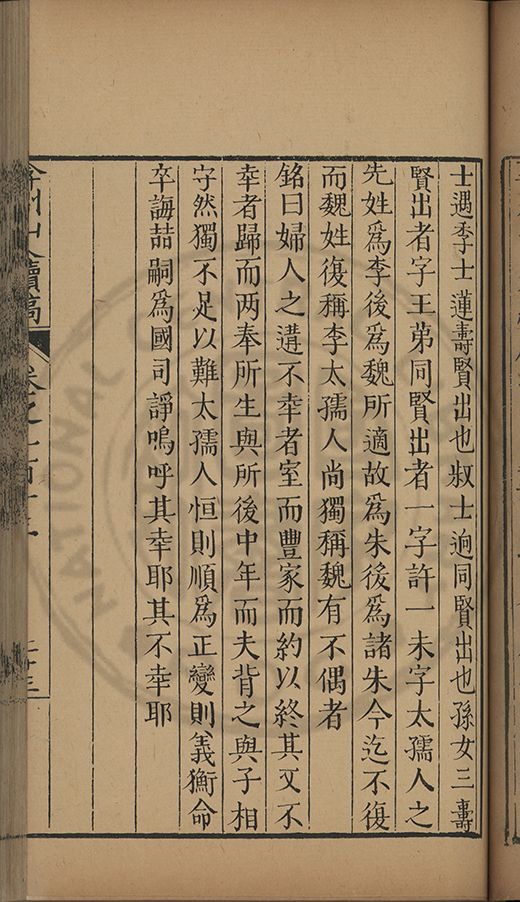 士遇季士蓮壽賢出也叔士逈同賢出也孫女三壽
賢出者字王弟同賢出者一字許一未字太孺人之
先姓爲李後爲魏所適故爲朱後爲諸朱今迄不復
而魏姓復稱李太孺人尚獨稱魏有不偶者
銘曰婦人之遘不幸者室而豐家而約以終其又不
幸者歸而两奉所生與所後中年而夫背之與子相
守然獨不足以難太孺人恒則順爲正變則義衡命
卒誨喆嗣爲國司諍嗚呼其幸耶其不幸耶
弇州山人續稿
卷之一百十